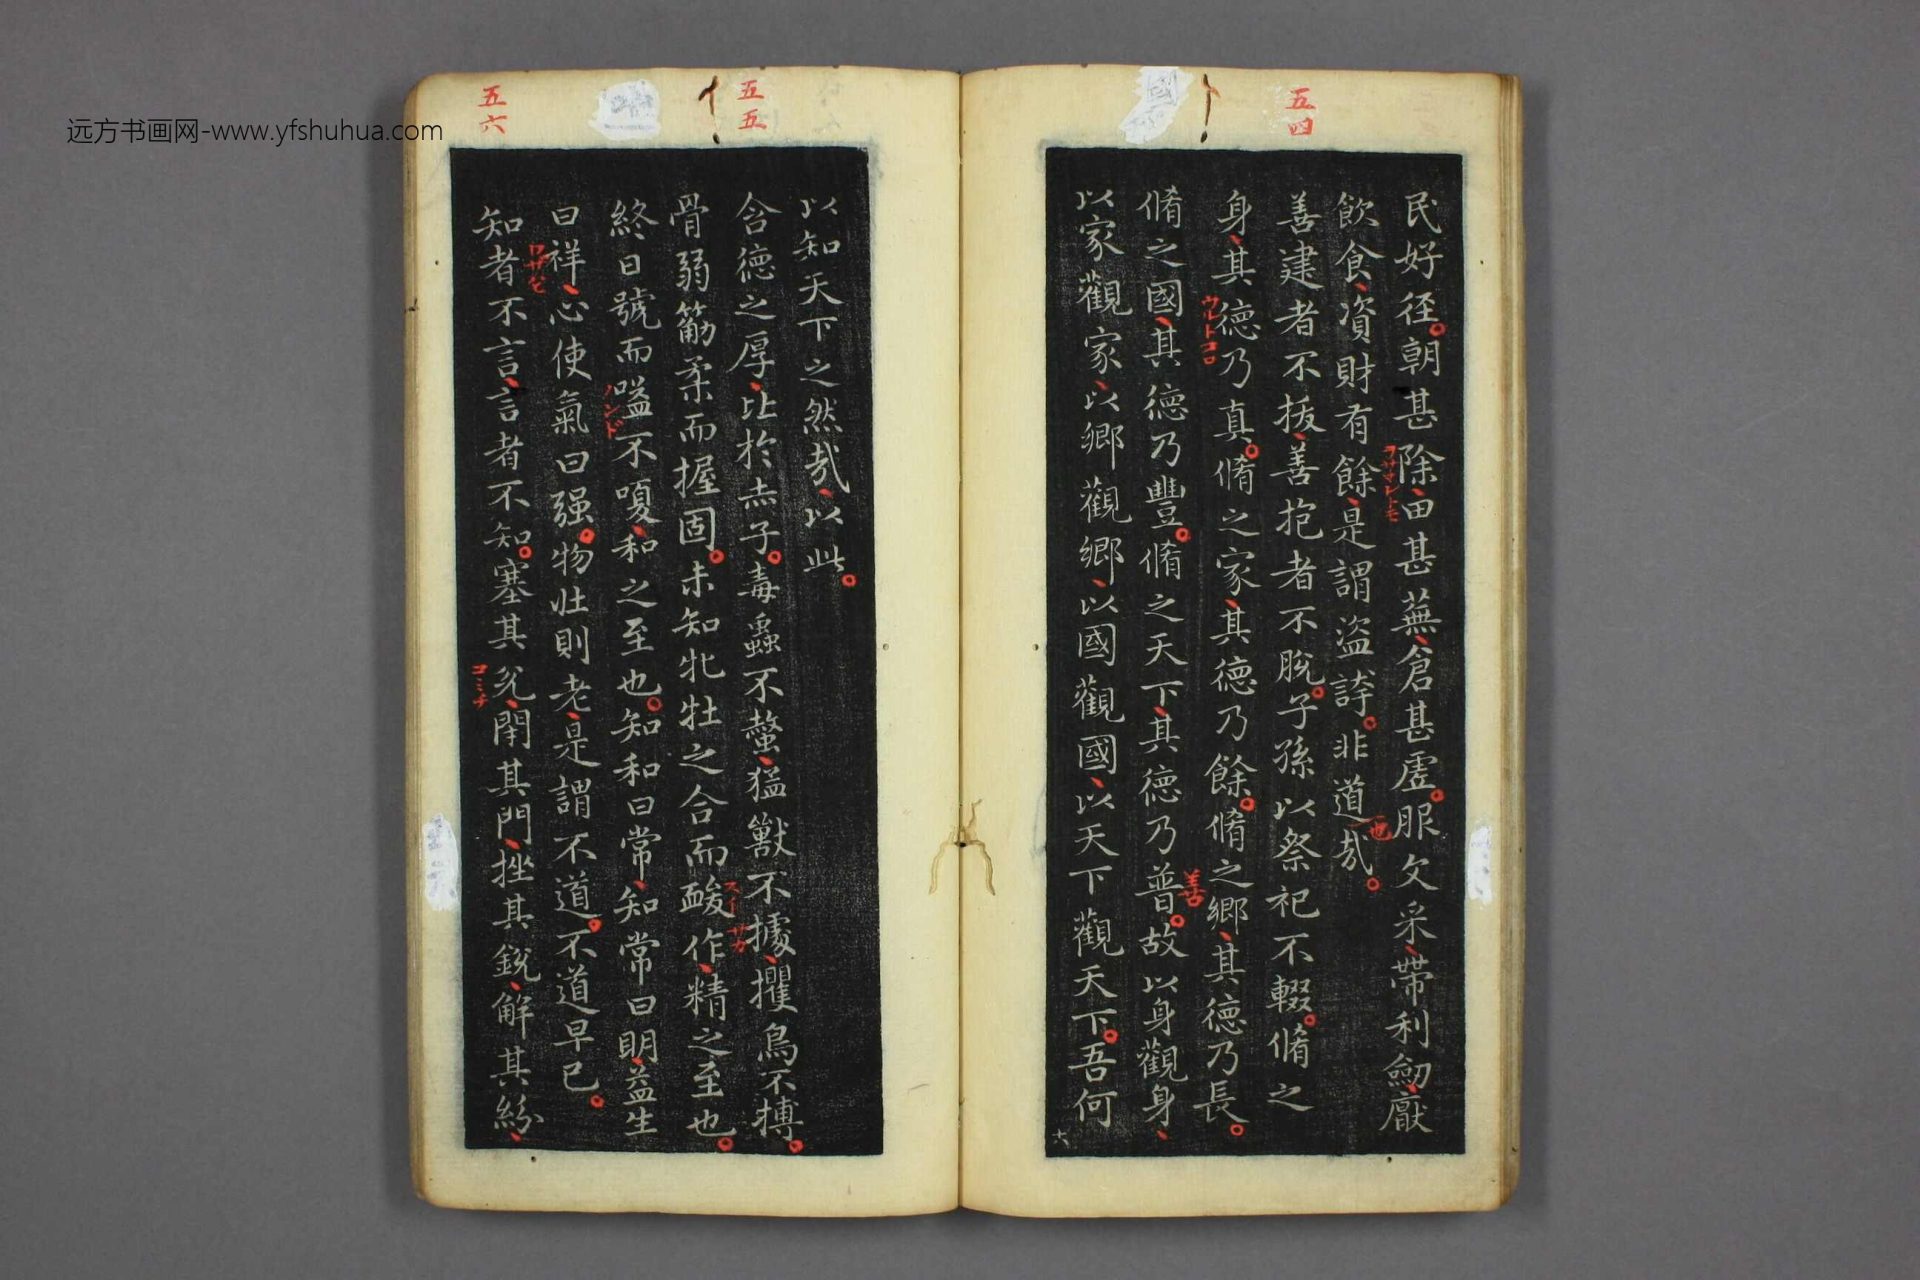 远方书画网-www.yfshuhua.com
五四
國
民好径。朝甚除、田甚蕪、倉甚虚。服文采、帶利劒、厭
飲食、資財有餘、是謂盗誇。非道也哉。
善建者不拔、善抱者不脫。子孫以祭祀不輟。脩之
身、其德乃真。脩之家、其德乃餘。脩之鄉、其德乃長。
脩之國、其德乃豐。脩之天下、其德乃普。故以身觀身、
善
以家觀家、以鄉觀鄉、以國觀國、以天下觀天下。吾何
六
五五
五六
以知天下之然哉、以此。
含德之厚、比於赤子。毒蟲不螫、猛獸不據、攫鳥不搏。
骨弱筋柔而握固。未知牝牡之合而酸作、精之至也。
終日號而嗌不嗄、和之至也。知和曰常、知常曰明、益生
ノンド
曰祥、心使氣曰强。物壯則老、是謂不道。不道早已。
知者不言、言者不知。塞其兌、閇其門、挫其銳、解其紛、
コミチ